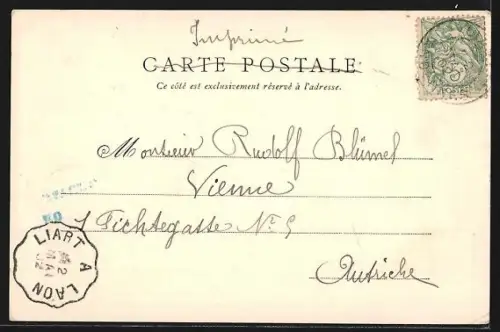 Imprimé
CARTE POSTALE
Ce côté est exclusivement réservé à l'adresse.
Monsieur Rudolf Blümel
Vienne
1 Fichtegasse Nr. 5
Autriche
LIART A LAON
2
MAI
02